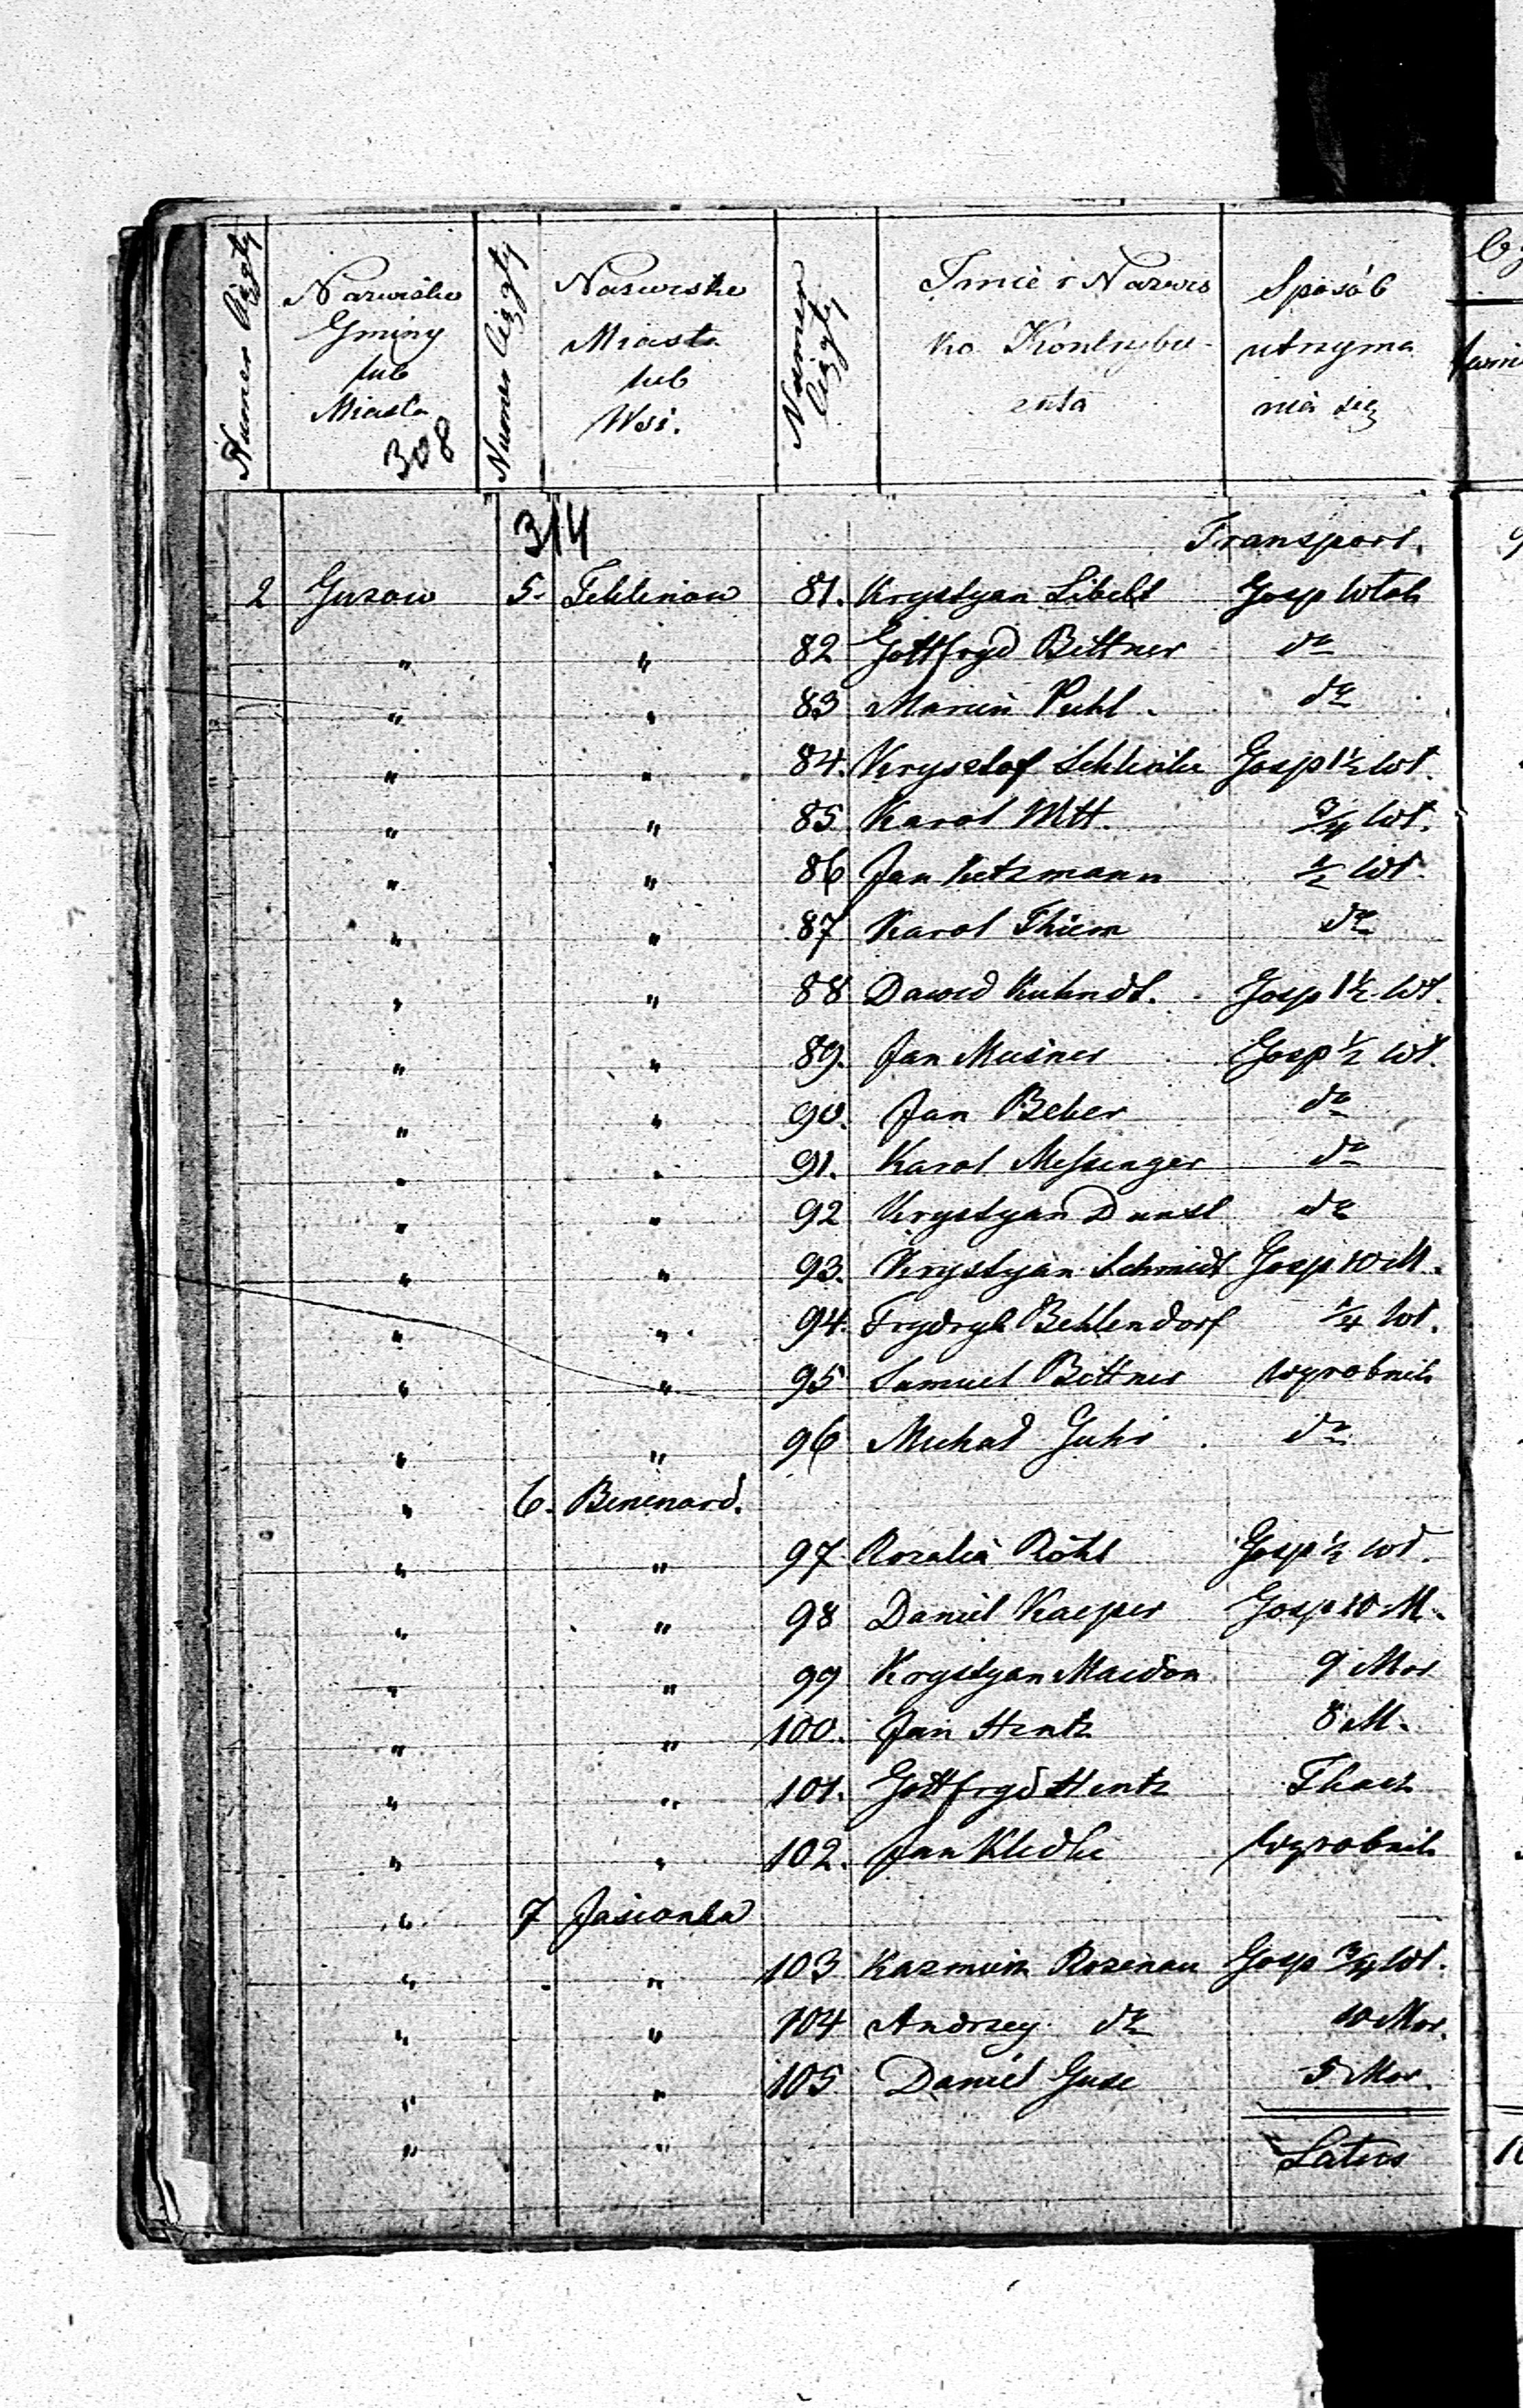 Numer Ciągły | Nazwisko Gminy lub Miasta | Numer Ciągły | Nazwisko Miasta lub Wsi. | Numer Ciągły | Imie i Nazwisko Kontrybuenta | Sposób utrzymania się
308
314
Transport.
2 Guzow 5. Tehlinow 81. Krystyan Libelt Gosp Włok
" " 82 Gottfryd Bittner do
" " 83 Marcin Puhl. do
" " 84. Krysztof Schlinke Gosp 1½ Wł.
" " 85 Karol Witt. ¾ Wł.
" " 86 Jan Lutzmann ½ Wł.
" " 87 Karol Thiem do
" " 88 Dawid Kuhndt. Gosp 1½ Wł.
" " 89. Jan Meisner Gosp ½ Wł.
" " 90. Jan Beker do
" " 91. Karol Messinger do
" " 92 Krystyan Dunst do
" " 93. Krystyan Schmidt Gosp 10 M.
" " 94. Frydryk Behlendorf ¼ Wł.
" " 95 Samuel Bittner Wyrobnik
" " 96 Michał Guhr do
" 6. Bienenard.
" " 97 Rozalia Röhl Gosp ½ Wł.
" " 98 Daniel Kacper Gosp 10 M.
" " 99 Krystyan Maidon 9 Mor
" " 100. Jan Hentz 8 M.
" " 101. Gottfryd Hentz Tkacz
" " 102. Jan Kledke Wyrobnik
" 7 Jasionka
" " 103 Kazmierz Rozenau Gosp ¾ Wł.
" " 104 Andrzey do 10 Mor.
" " 105 Daniel Guse 5 Mor.
" " Latus